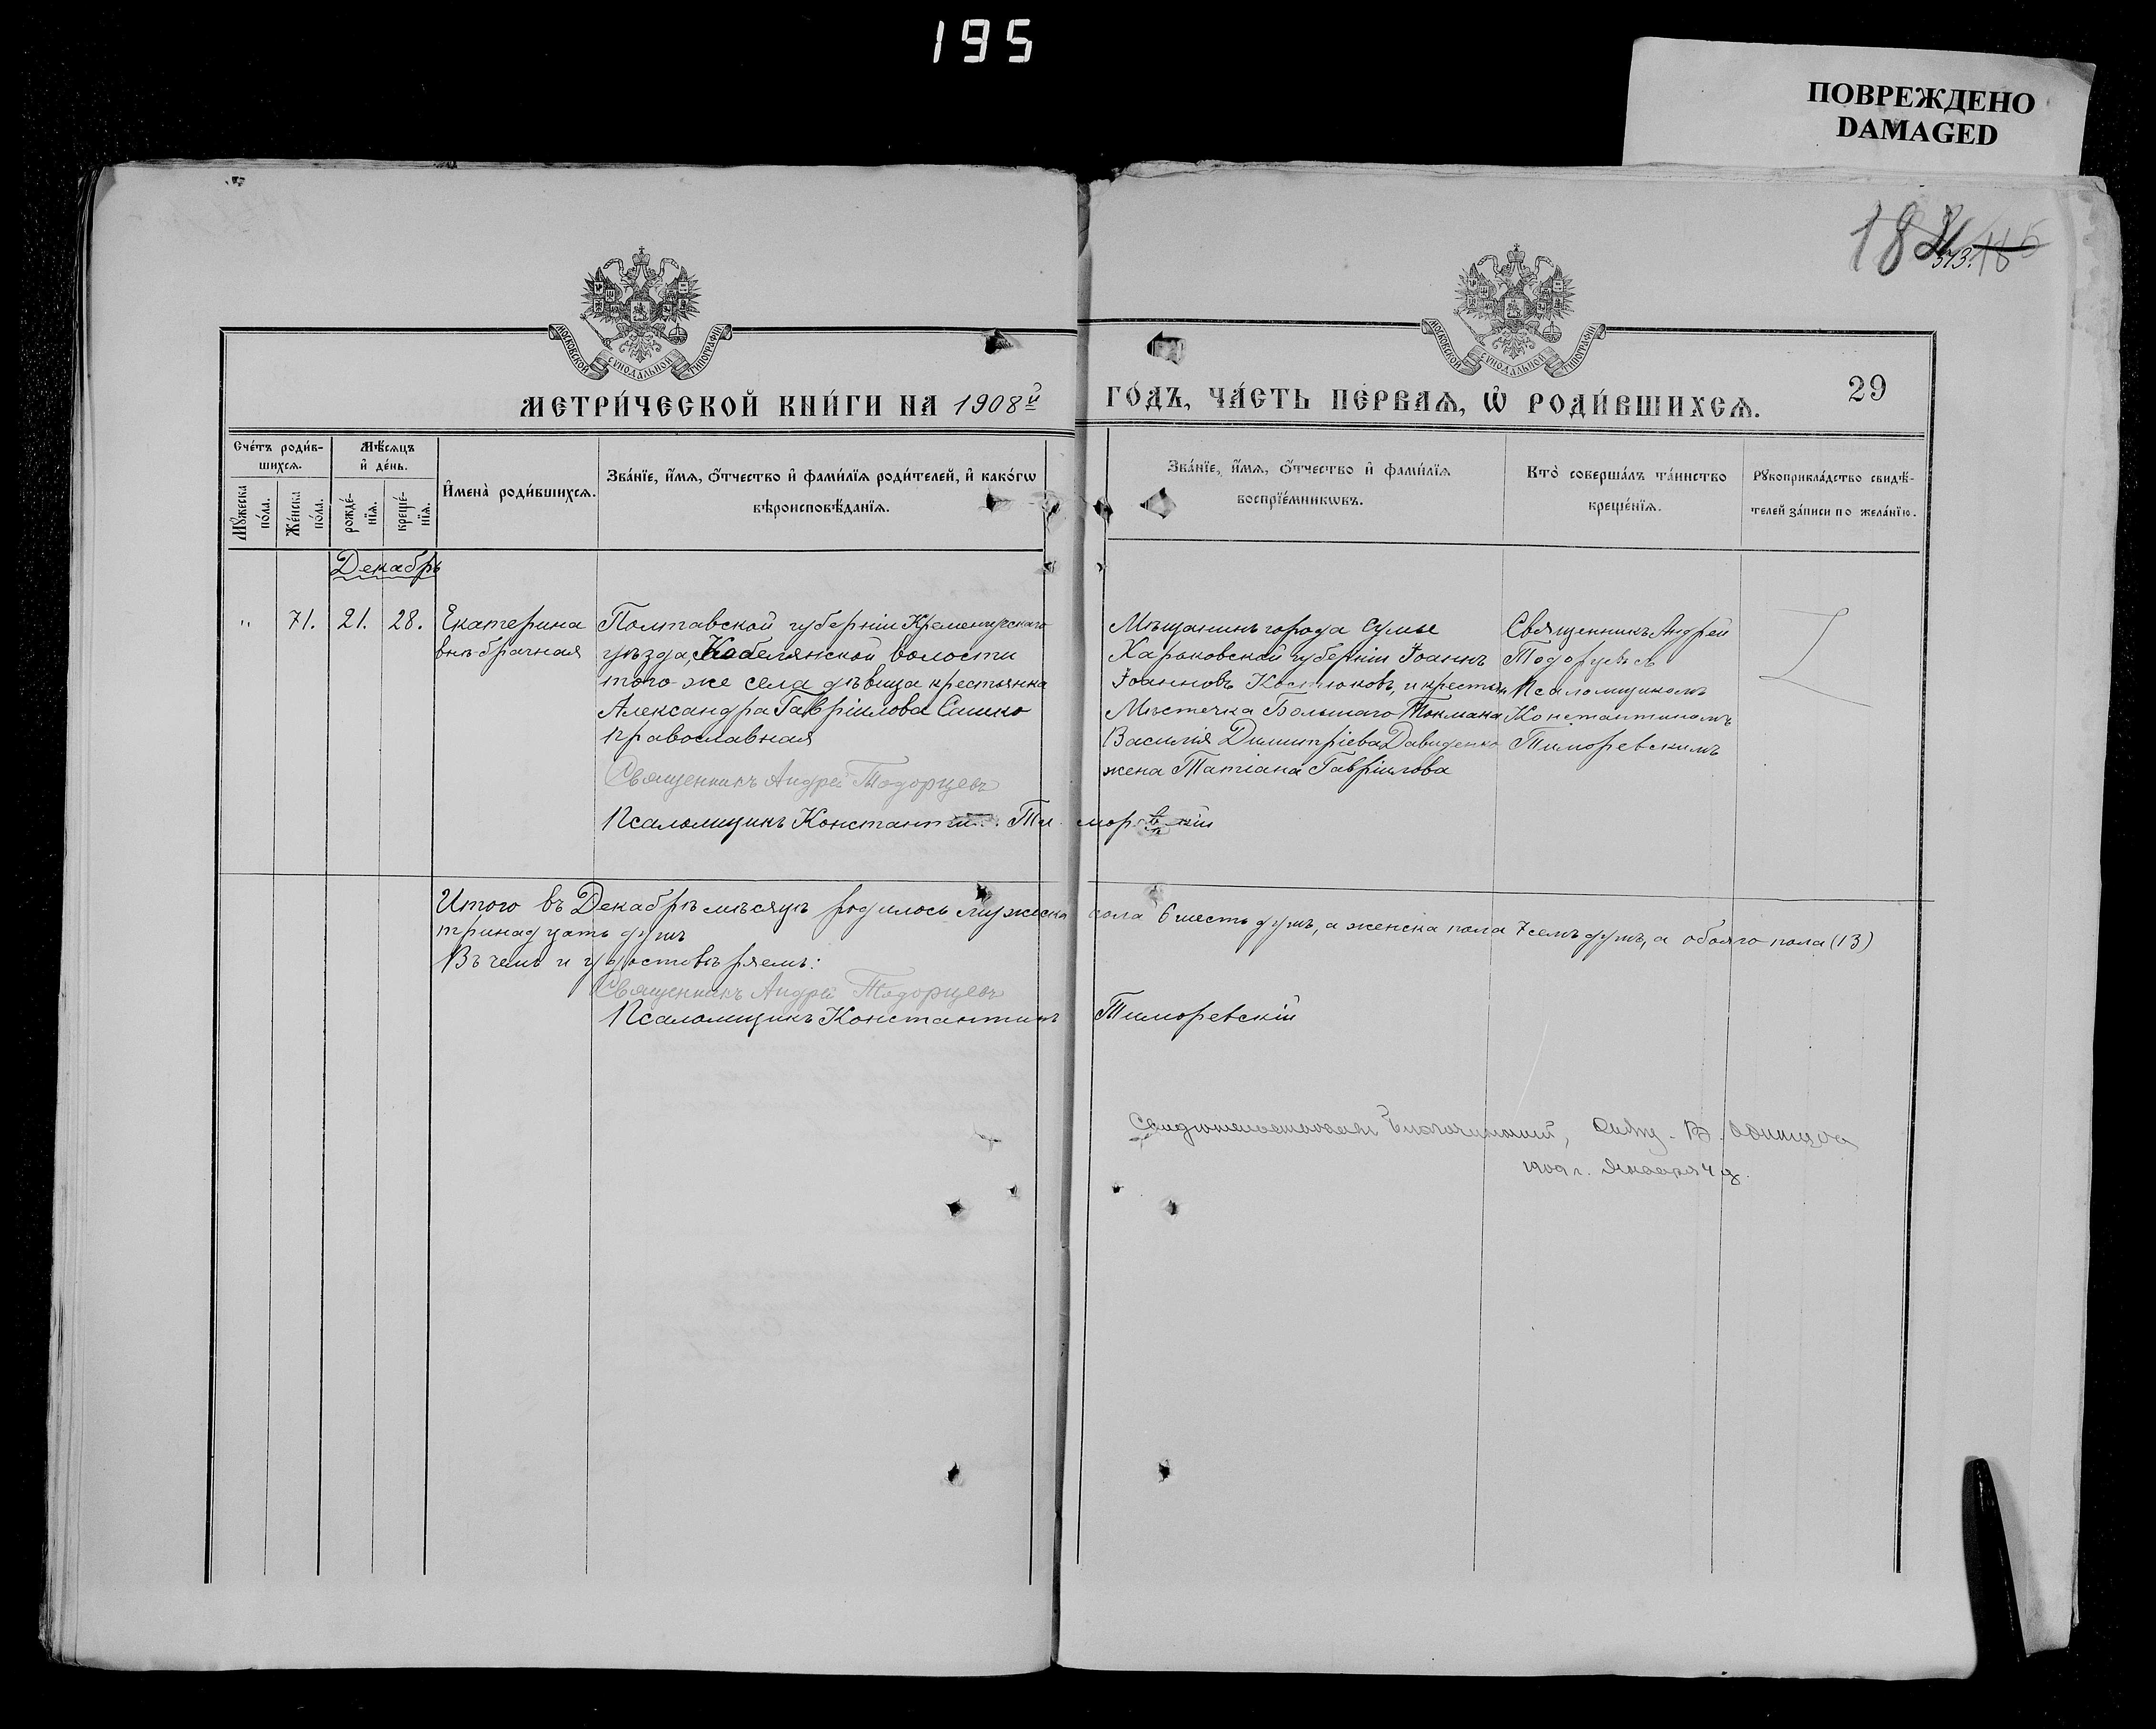 195
ПОВРЕЖДЕНО
DAMAGED
МОСКОВСКОЙ СУНОДАЛЬНОЙ ТИПОГРАФІИ
МОСКОВСКОЙ СУНОДАЛЬНОЙ ТИПОГРАФІИ
29
МЕТРИ́ЧЕСКОЙ КНИ́ГИ НА 1908й ГО́ДЪ, ЧА́СТЬ ПЕ́РВАѦ, Ѡ҆ РОДИ́ВШИХСѦ.
Сче́тъ роди́вшихсѧ.
Мꙋ́жеска по́ла.
Же́нска по́ла.
Мѣ́сѧцъ и҆ де́нь.
рожде́нїѧ.
креще́нїѧ.
И҆мена̀ роди́вшихсѧ.
Зва́нїе, и҆́мѧ, ѻ҆́тчество и҆ фами́лїѧ роди́телей, и҆ како́гѡ
вѣроисповѣ́данїѧ.
Зва́нїе, и҆́мѧ, ѻ҆́тчество и҆ фами́лїѧ
воспрїе́мникѡвъ.
Кто̀ соверша́лъ та́инство
креще́нїѧ.
Рꙋкоприкла́дство свидѣ́-
телей за́писи по жела́нїю.
Декабрь
" 71. 21. 28.
Екатерина
внѣбрачная
Полтавской губерніи Кременчугскаго
уѣзда, Кобелянской волости
того-же села дѣвица крестьянка
Александра Гавріилова Сашко
православная
Священникъ Андрей Тодорцевъ
Псаломщикъ Константи Ти мор кій
Мѣщанинъ города Сумы
Харьковской губерніи Іоаннъ
Іоанновъ Костюковъ, и крестьян
Мѣстечка Большаго Токмака
Василія Димитріева Давиденко
жена Татіана Гавріилова
Священникъ Андрей
Тодорцевъ съ
Псаломщикомъ
Константиномъ
Тиморевскимъ
Итого въ Декабрѣ мѣсяцѣ родилось мужеска пола 6 шесть душъ, а женска пола 7 семь душъ, а обоего пола (13)
тринадцать душъ
Въ чемъ и удостовѣряемъ:
Священникъ Андрей Тодорцевъ
Псаломщикъ Константинъ Тиморевскій
Свидѣтельствовалъ Благочинный, Свящ. В.
1909 г. Января 4 д.